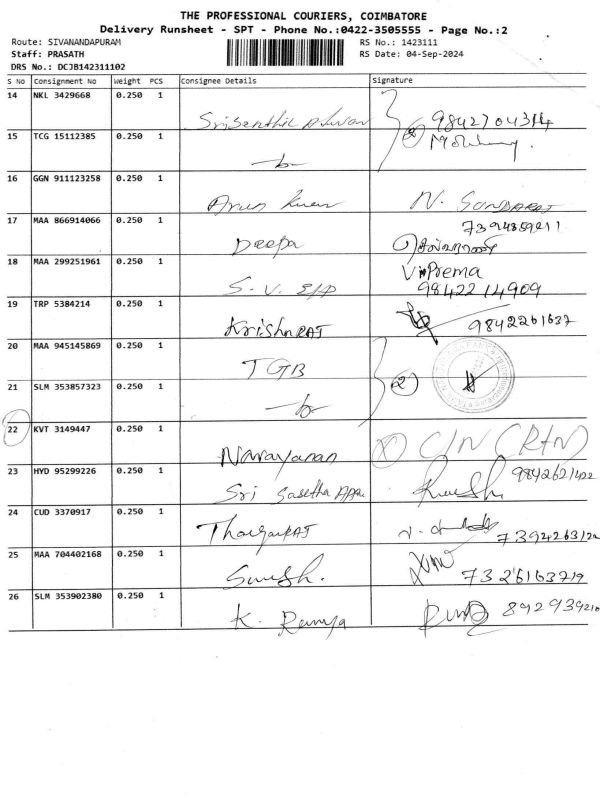 THE PROFESSIONAL COURIERS, COIMBATORE
Delivery Runsheet - SPT - Phone No.:0422-3505555 - Page No.:2
Route: SIVANANDAPURAM RS No.: 1423111
Staff: PRASATH RS Date: 04-Sep-2024
DRS No.: DCJB142311102
S No Consignment No Weight PCS Consignee Details Signature
14 NKL 3429668 0.250 1
9842704314
15 TCG 15112385 0.250 1
16 GGN 911123258 0.250 1
Arun N. SUNDARAJ
17 MAA 866914066 0.250 1
Deepa
18 MAA 299251961 0.250 1 V. Prema
S. V. 98422 14909
19 TRP 5384214 0.250 1
KrishnRAJ 9842261637
20 MAA 945145869 0.250 1
TGB
21 SLM 353857323 0.250 1 2
22 KVT 3149447 0.250 1
Narayanan
23 HYD 95299226 0.250 1
Sri
24 CUD 3370917 0.250 1
25 MAA 704402168 0.250 1
Suresh. 7326163719
26 SLM 353902380 0.250 1
K. Ramya